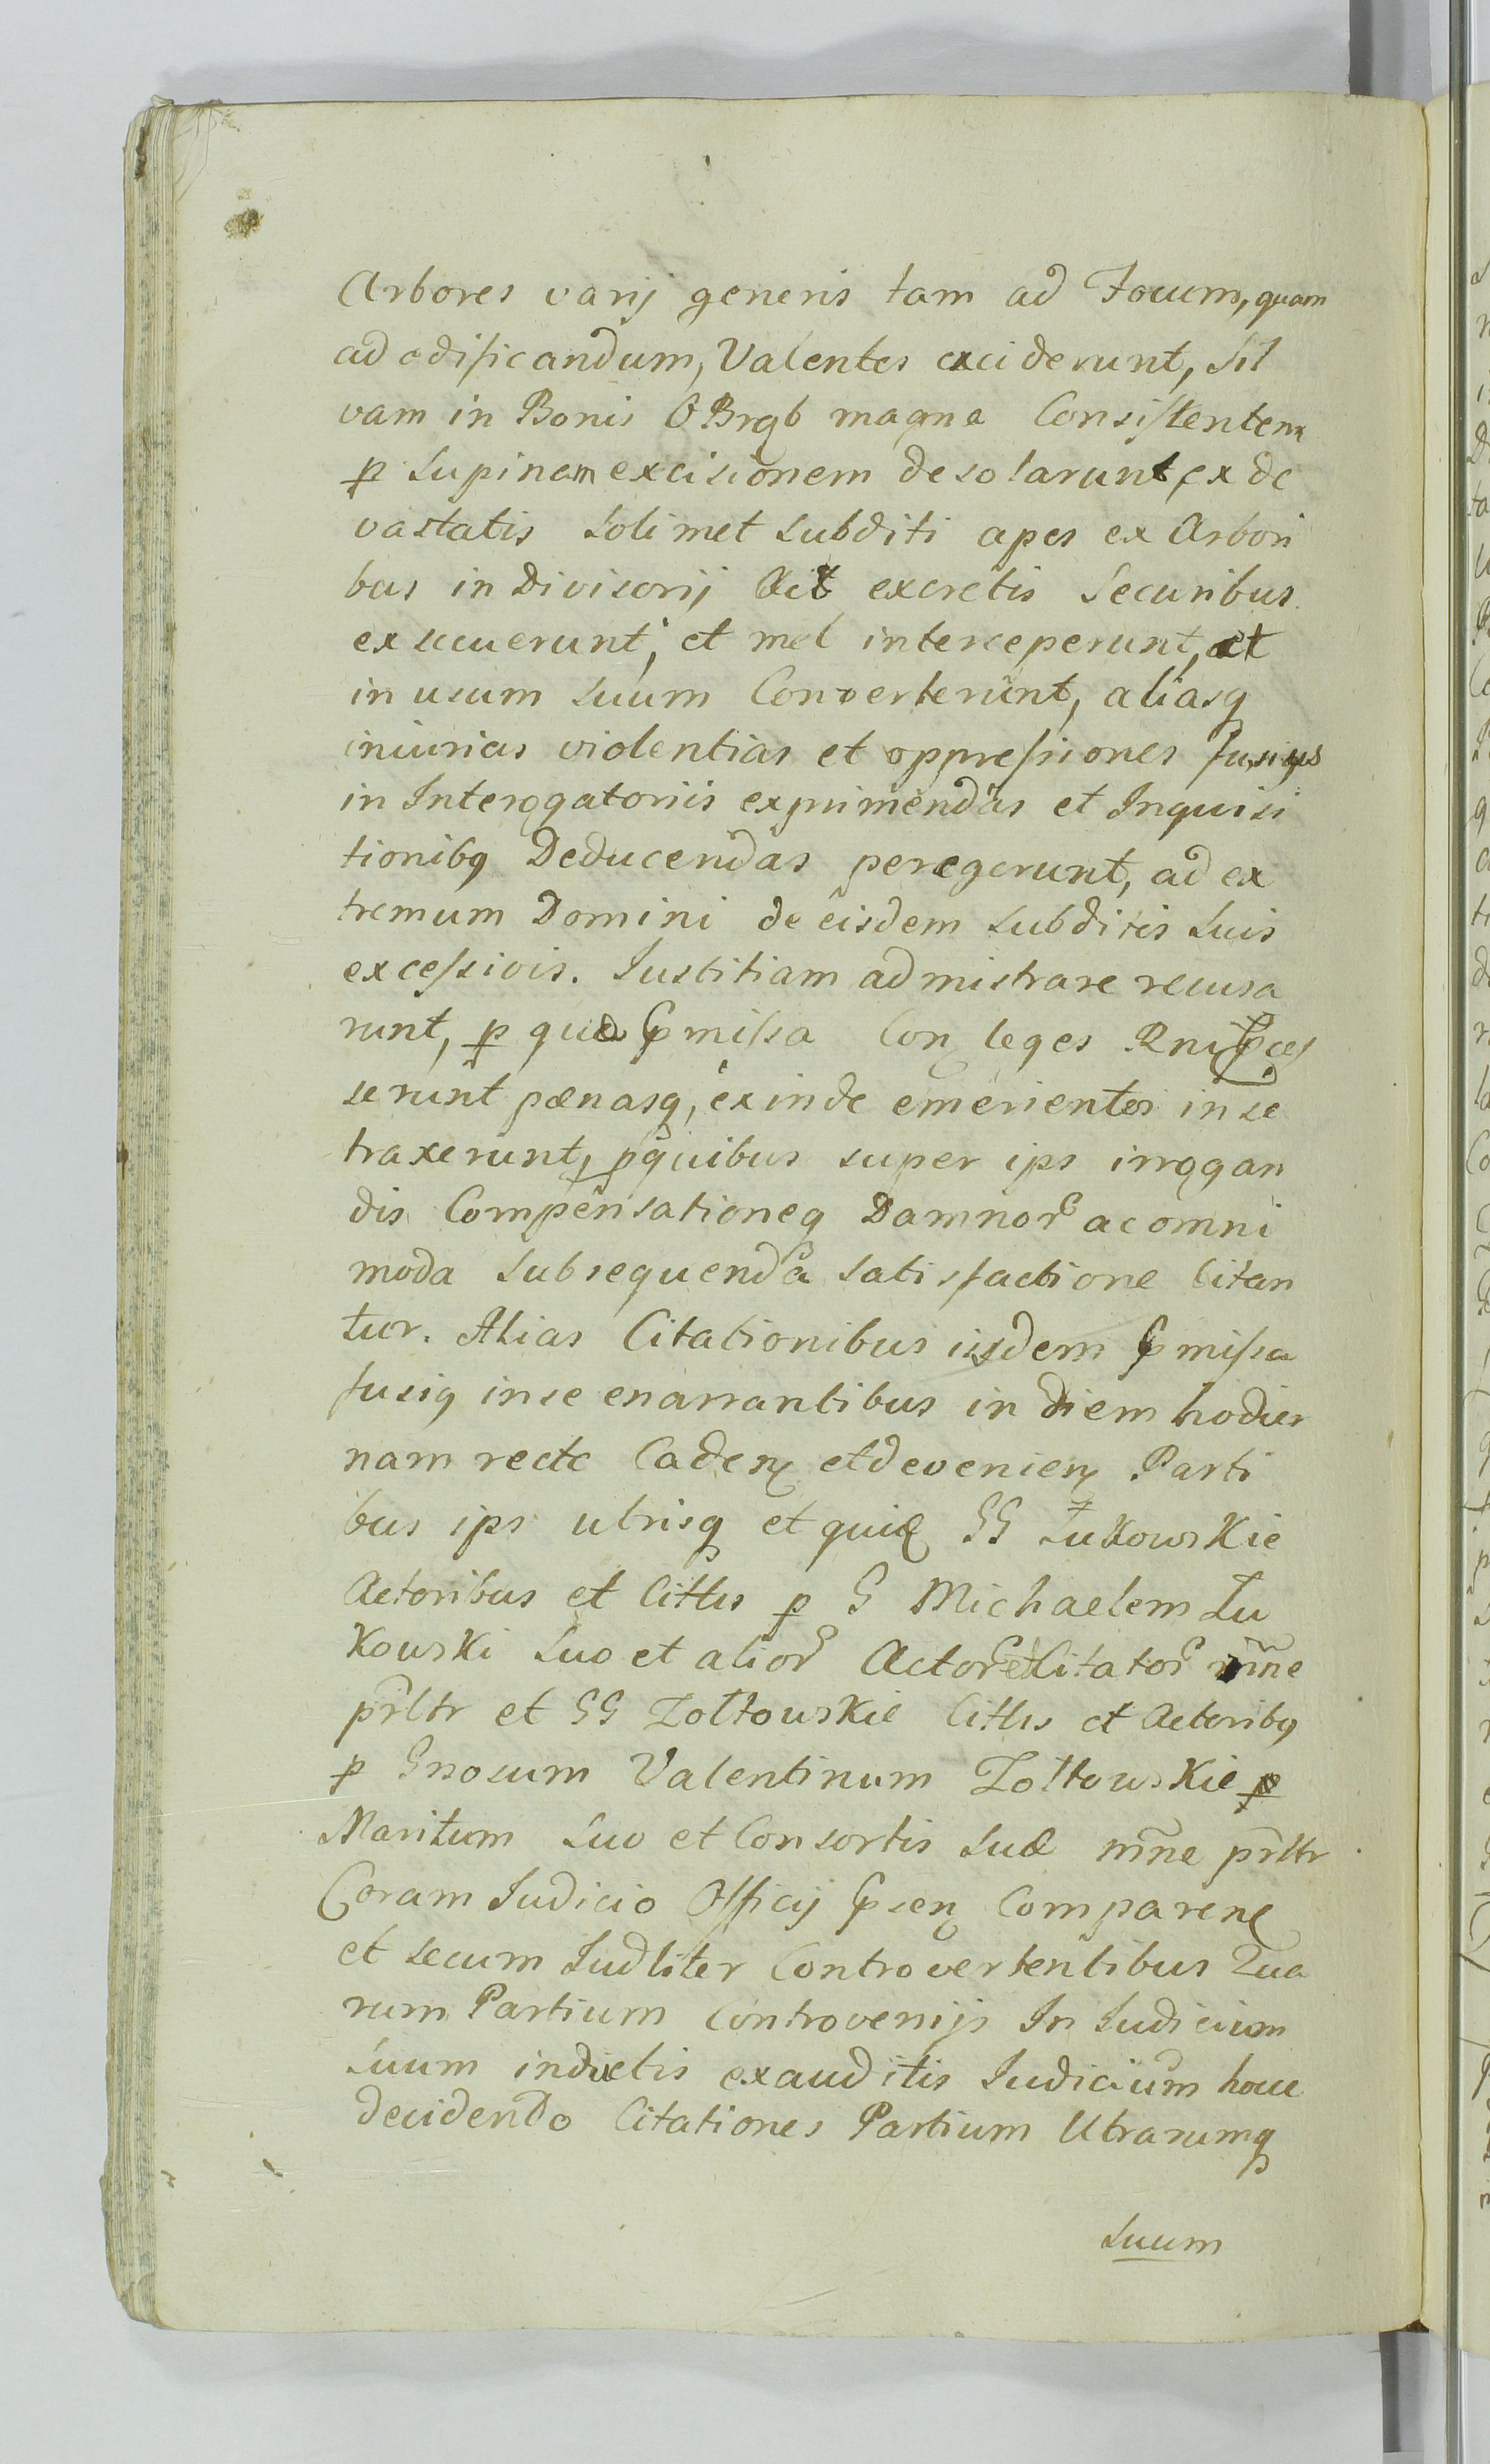 Arbores varij generis tam ad Focum, quam
ad edificandum, Valentes exciderunt, Sil
vam in Bonis O Brgb magna Consistentem
p supinam excisionem desolarunt, ex de
vastatis solimet subditi apes ex Arbori
bus in Divisorij excretis Securibus
exsecuerunt, et mel interceperunt, et
in usum suum Converterunt, aliasq
iniurias violentias et oppressiones fusius
in Interogatoriis exprimendas et Inquisi
tionibq Deducendas peregerunt, ad ex
tremum Domini de eisdem subditis suis
excessivis. Iustitiam admistrare recusa
runt, p quæ pmissa Con leges Rni
serunt pænasq, exinde emerientes in se
traxerunt, p quibus super ips irrogan
dis Compensationeq Damnor ac omni
moda subsequenda satisfactione Citan
tur. Alias Citationibus iisdem pmissa
fusiq in se enarrantibus in diem hodier
nam recte Caden et devenien Parti
bus ips utrisq et quid GG Żukowskie
Actoribus et Cittis p G Michaelem Żu
Kowski suo et alior Actor et Citator nĩne
prltr et GG Zołtowskie Cittis et Actoribq
p Gnosum Valentinum Zołtowskie p
Maritum suo et Consortis suæ nĩne prltr
Coram Iudicio Officij psen Comparen
et secum Iudliter Controvertentibus Qua
rum Partium Controversijs In Iudicium
suum inductis exauditis Iudicium hocce
decidendo Citationes Partium Utrarumq
suum